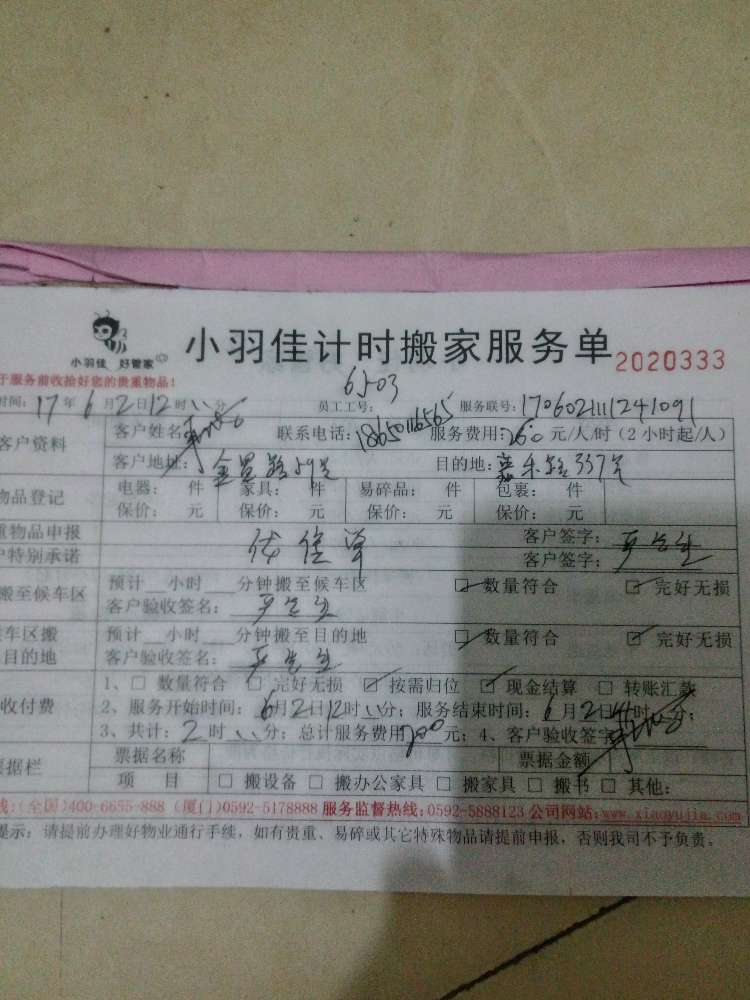 小羽佳 好管家
小羽佳计时搬家服务单 2020333
于服务前收拾好您的贵重物品!
时间: 17年6月2日12时 分 员工工号: 6503 服务联号:
客户资料 客户姓名: 联系电话: 18650116565 服务费用: 元/人/时(2小时起/人)
客户地址: 目的地:
物品登记 电器: 件 家具: 件 易碎品: 件 包裹: 件
保价: 元 保价: 元 保价: 元 保价: 元
重物品申报 客户签字:
户特别承诺 客户签字:
搬至候车区 预计 小时 分钟搬至候车区 ☑数量符合 ☑完好无损
客户验收签名:
车区搬 预计 小时 分钟搬至目的地 ☑数量符合 ☑完好无损
目的地 客户验收签名:
收付费 1、☐ 数量符合 ☐ 完好无损 ☑ 按需归位 ☑ 现金结算 ☐ 转账汇款
2、服务开始时间: 6月2日12时 分; 服务结束时间: 6月2日 时 分;
3、共计: 2时 分; 总计服务费用 元; 4、客户验收签字
据栏 票据名称 票据金额
项 目 ☐ 搬设备 ☐ 搬办公家具 ☐ 搬家具 ☐ 搬书 ☐ 其他:
线:(全国)400-6655-888 (厦门)0592-5178888 服务监督热线:0592-5888123 公司网站:www.xiaoyujia.com
提示: 请提前办理好物业通行手续, 如有贵重、易碎或其它特殊物品请提前申报, 否则我司不予负责。